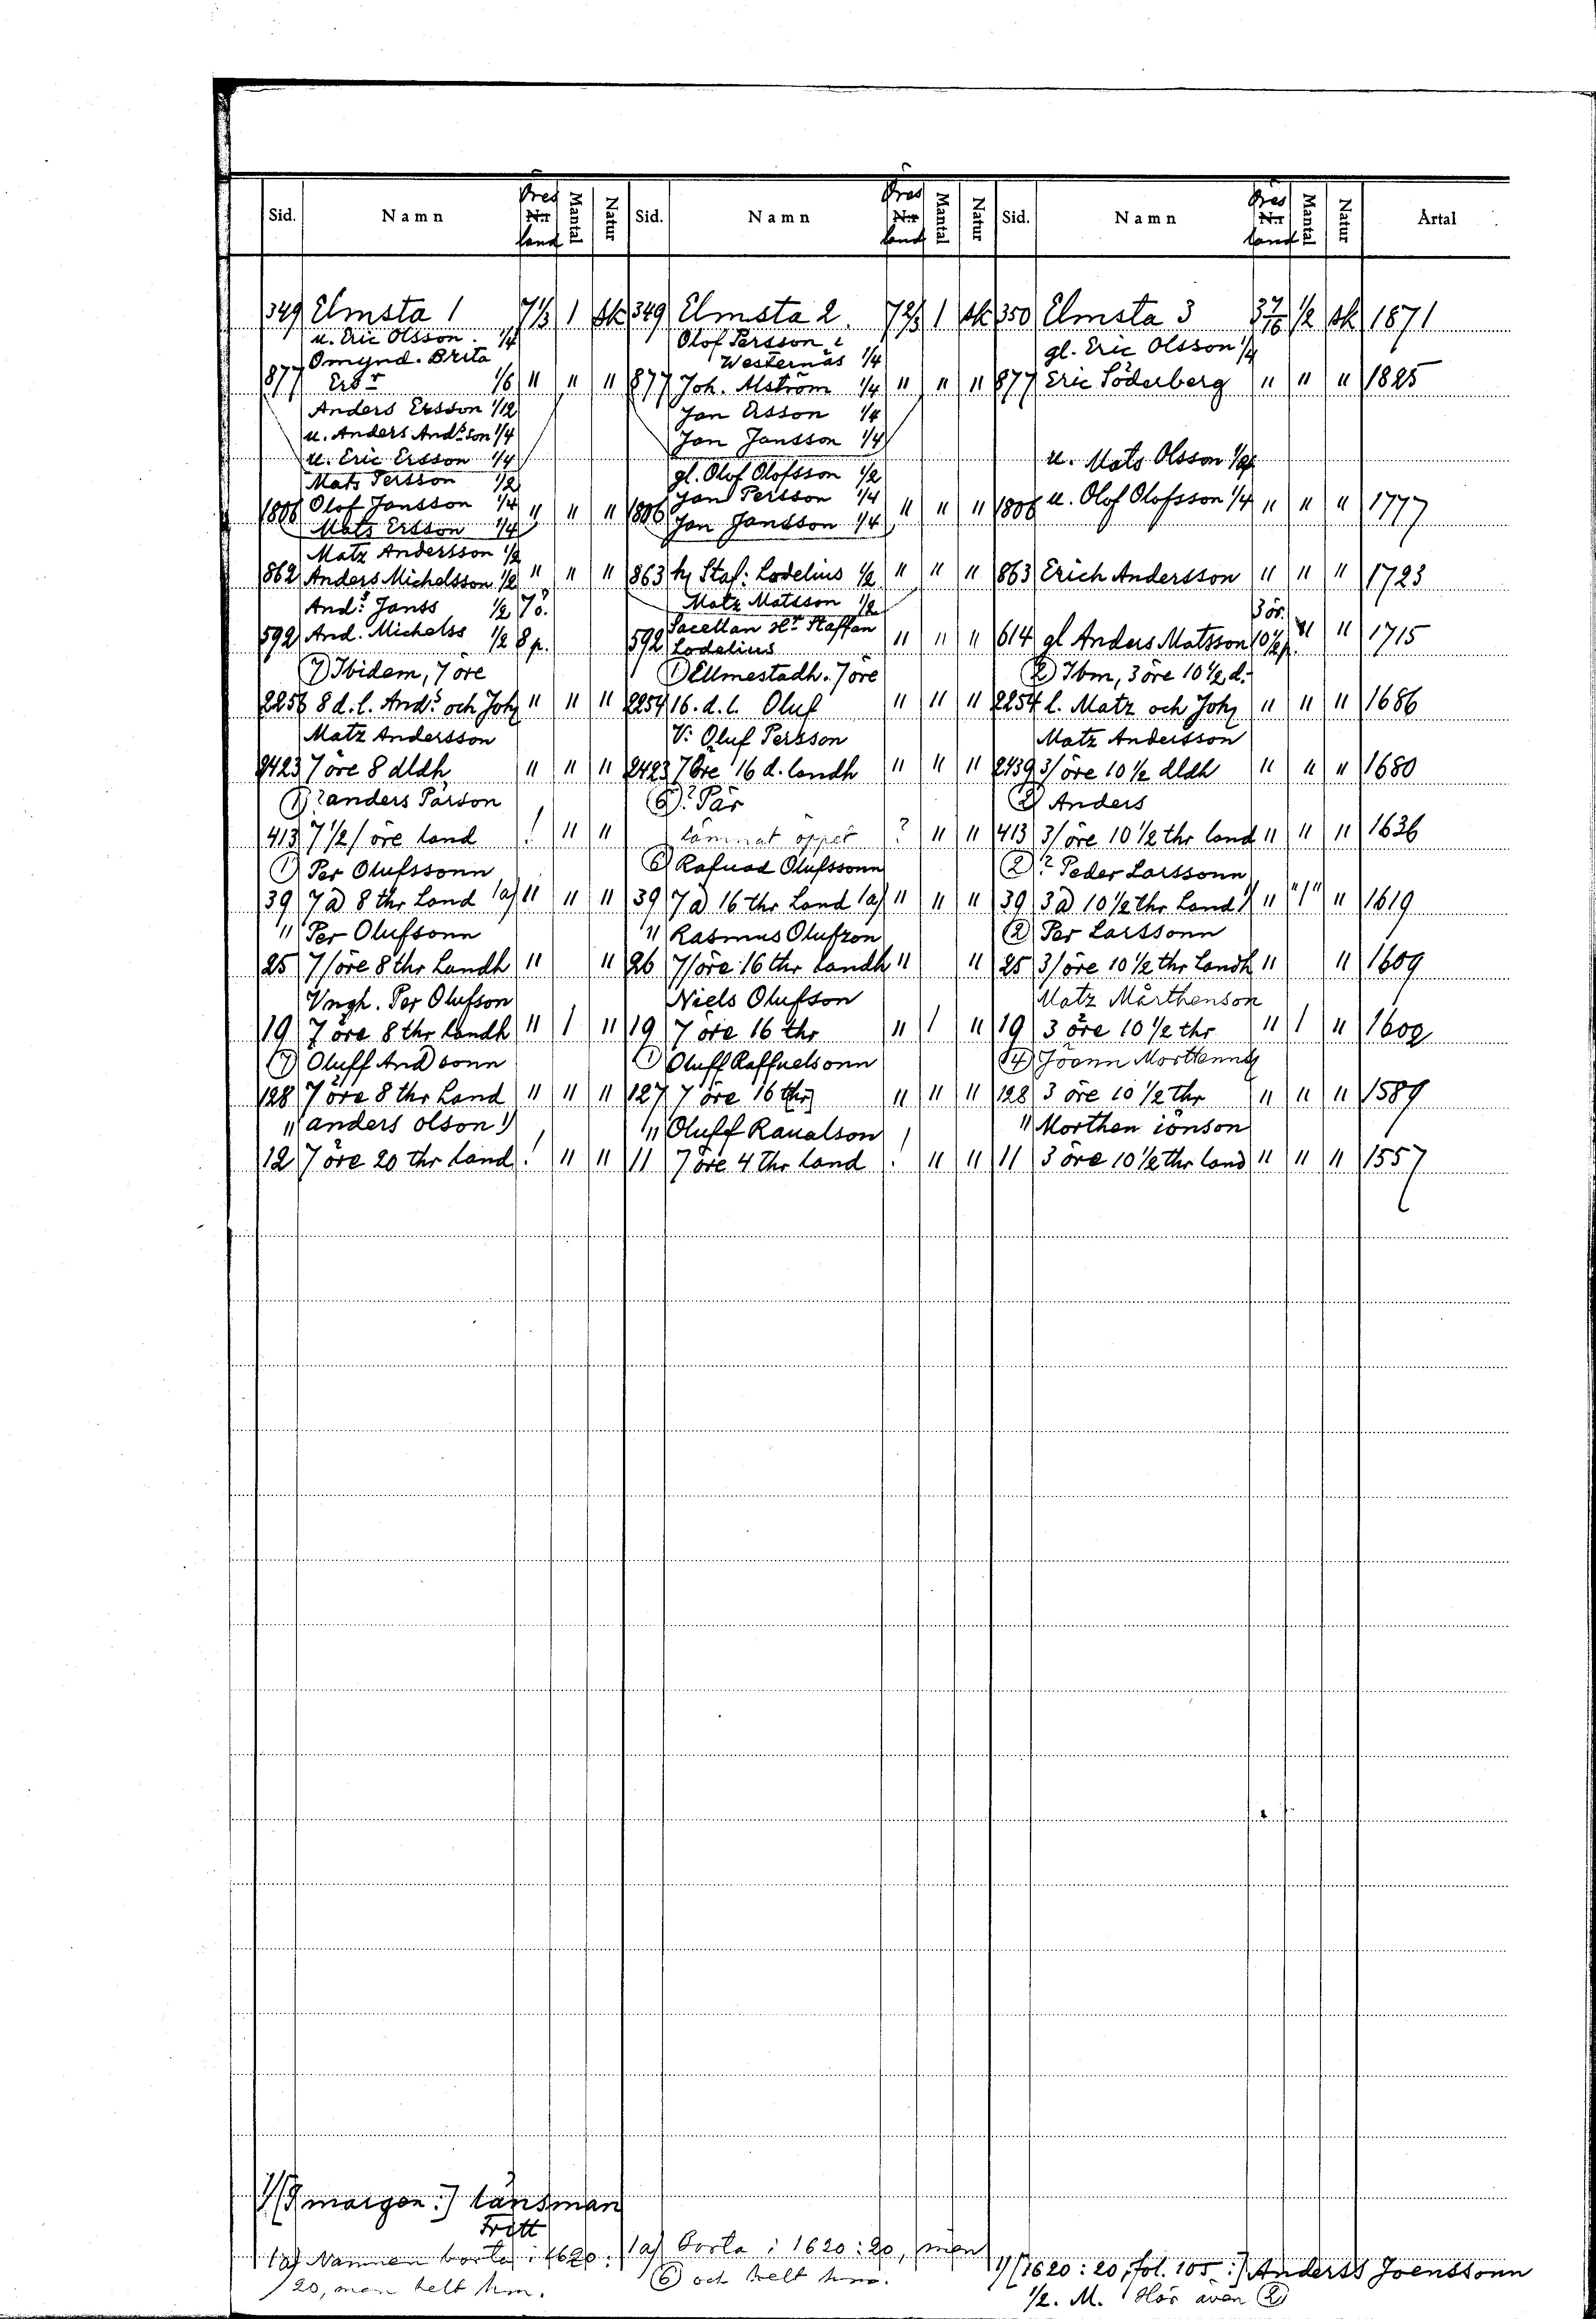 Sid. Namn Öres Nr land Mantal Natur Sid. Namn Öres Nr land Mantal Natur Sid. Namn Öres Nr land Mantal Natur Årtal
349 Elmsta 1 7 1/3 1 sk 349 Elmsta 2. 7 2/3 1 sk 350 Elmsta 3 3 7/16 1/2 sk 1871
u. Eric Olsson. 1/4 Olof Persson i gl. Eric Olsson 1/4
Omynd. Brita Westernäs 1/4
877 Ers:r 1/6 " " " 877 Joh. Alström 1/4 " " " 877 Eric Söderberg " " " 1825
Anders Ersson 1/12 Jan Ersson 1/4
u. Anders And:son 1/4 Jan Jansson 1/4
u. Eric Ersson 1/4 u. Mats Olsson 1/4
Mats Persson 1/2 gl. Olof Olofsson 1/2
1806 Olof Jansson 1/4 " " " 1806 Jan Persson 1/4 " " " 1806 u. Olof Olofsson 1/4 " " " 1777
Mats Ersson 1/4 Jan Jansson 1/4
Matz Andersson 1/2
862 Anders Michelsson 1/2 " " " 863 h. Staf: Lodelius 1/2 " " " 863 Erich Andersson " " " 1723
And:s Janss 1/2 7ö. Matz Matsson 1/2 3 ör.
592 And. Michelss 1/2 8 p. 592 Sacellan H:r Staffan Lodelius " " " 614 gl Anders Matsson 10 1/2 p. " " 1715
7) Ibidem, 7 öre 1) Ellmestadh. 7 öre 2) Ibm, 3 öre 10 1/2 d:
2256 8 d. l. And:s och Joh " " " 2254 16. d. l. Oluf " " " 2254 l. Matz och Joh " " " 1686
Matz Andersson V: Oluf Persson Matz Andersson
2423 7 öre 8 dldh " " " 2423 7 öre 16 d. landh " " " 2439 3/öre 10 1/2 dldh " " " 1680
1)? anders Pärson 6)? Pär 2) Anders
413 7 1/2/öre land ! " " lämnat öppet ? " " 413 3/öre 10 1/2 thr land " " " 1636
1) Per Olufssonn 6) Rafuad Olufssonn 2)? Peder Larssonn
39 7 ö 8 thr Land 1a) " " " 39 7 ö 16 thr Land 1a) " " " 39 3 ö 10 1/2 thr Land 1) " "1" " 1619
" Per Olufsonn " Rasmus Olufzon 2) Per Larssonn
25 7/öre 8 thr Landh " " 26 7/öre 16 thr landh " " 25 3/öre 10 1/2 thr Landh " " 1609
Vngh. Per Olufson Niels Olufson Matz Mårthenson
19 7 öre 8 thr landh " 1 " 19 7 öre 16 thr " 1 " 19 3 öre 10 1/2 thr " 1 " 1602
7) Oluff And sonn 1) Oluff Raffuelsonn 4) Jöenn Morttenns
128 7 öre 8 thr Land " " " 127 7 öre 16 thr " " " 128 3 öre 10 1/2 thr " " " 1589
" anders olson 1) " Oluff Raualson " Morthen iönson
12 7 öre 20 thr land ! " " 11 7 öre 4 thr land ! " " 11 3 öre 10 1/2 thr land " " " 1557
1) [I margen:] länsman
Fritt
1a) Namnen borta i 1620: 1a) borta i 1620:20, men 1) [1620:20, fol. 105:] Anderss Joenssonn
20, men helt hm. 6) och helt hm. 1/2. M. Hör även 2)